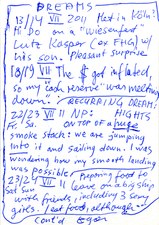 DREAMS
13/14 VII 2011 Met in Köln:
Hi Do on a "Wiesenfest"
Lutz Kasper (ex FHG) w/
his son. Pleasant surprise
18/19 VII The $ got inflated,
so my "cash reserve" was melting
down. RECURRING DREAM:
22/23 VII ND: HIGHTS
Fr Sa. ON TOP of a huge
smoke stack: we are jumping
into it and sailing down. I was
wondering how my smooth landing
was possible / Preparing food to
23/24 VII leave on a big ship
Sat Sun with friends, including 3 sexy
girls. I eat food, although
cont'd again